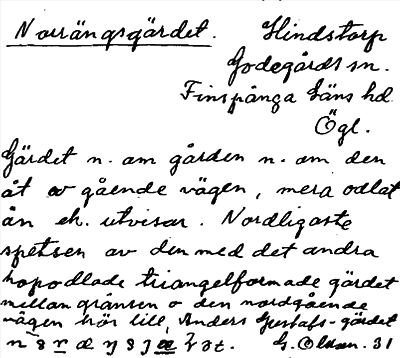 Norrängsgärdet. Hindstorp
Godegårds sn.
Finspånga läns hd
Ögl.
Gärdet n. om gården n. om den
åt ov gående vägen, mera odlat
än ek. utvisar. Nordligaste
spetsen av den med det andra
hopodlade triangelformade gärdet
mellan gränsen o den nordgående
vägen hör till Anders Gustafs-gärdet
G. Olson. 31